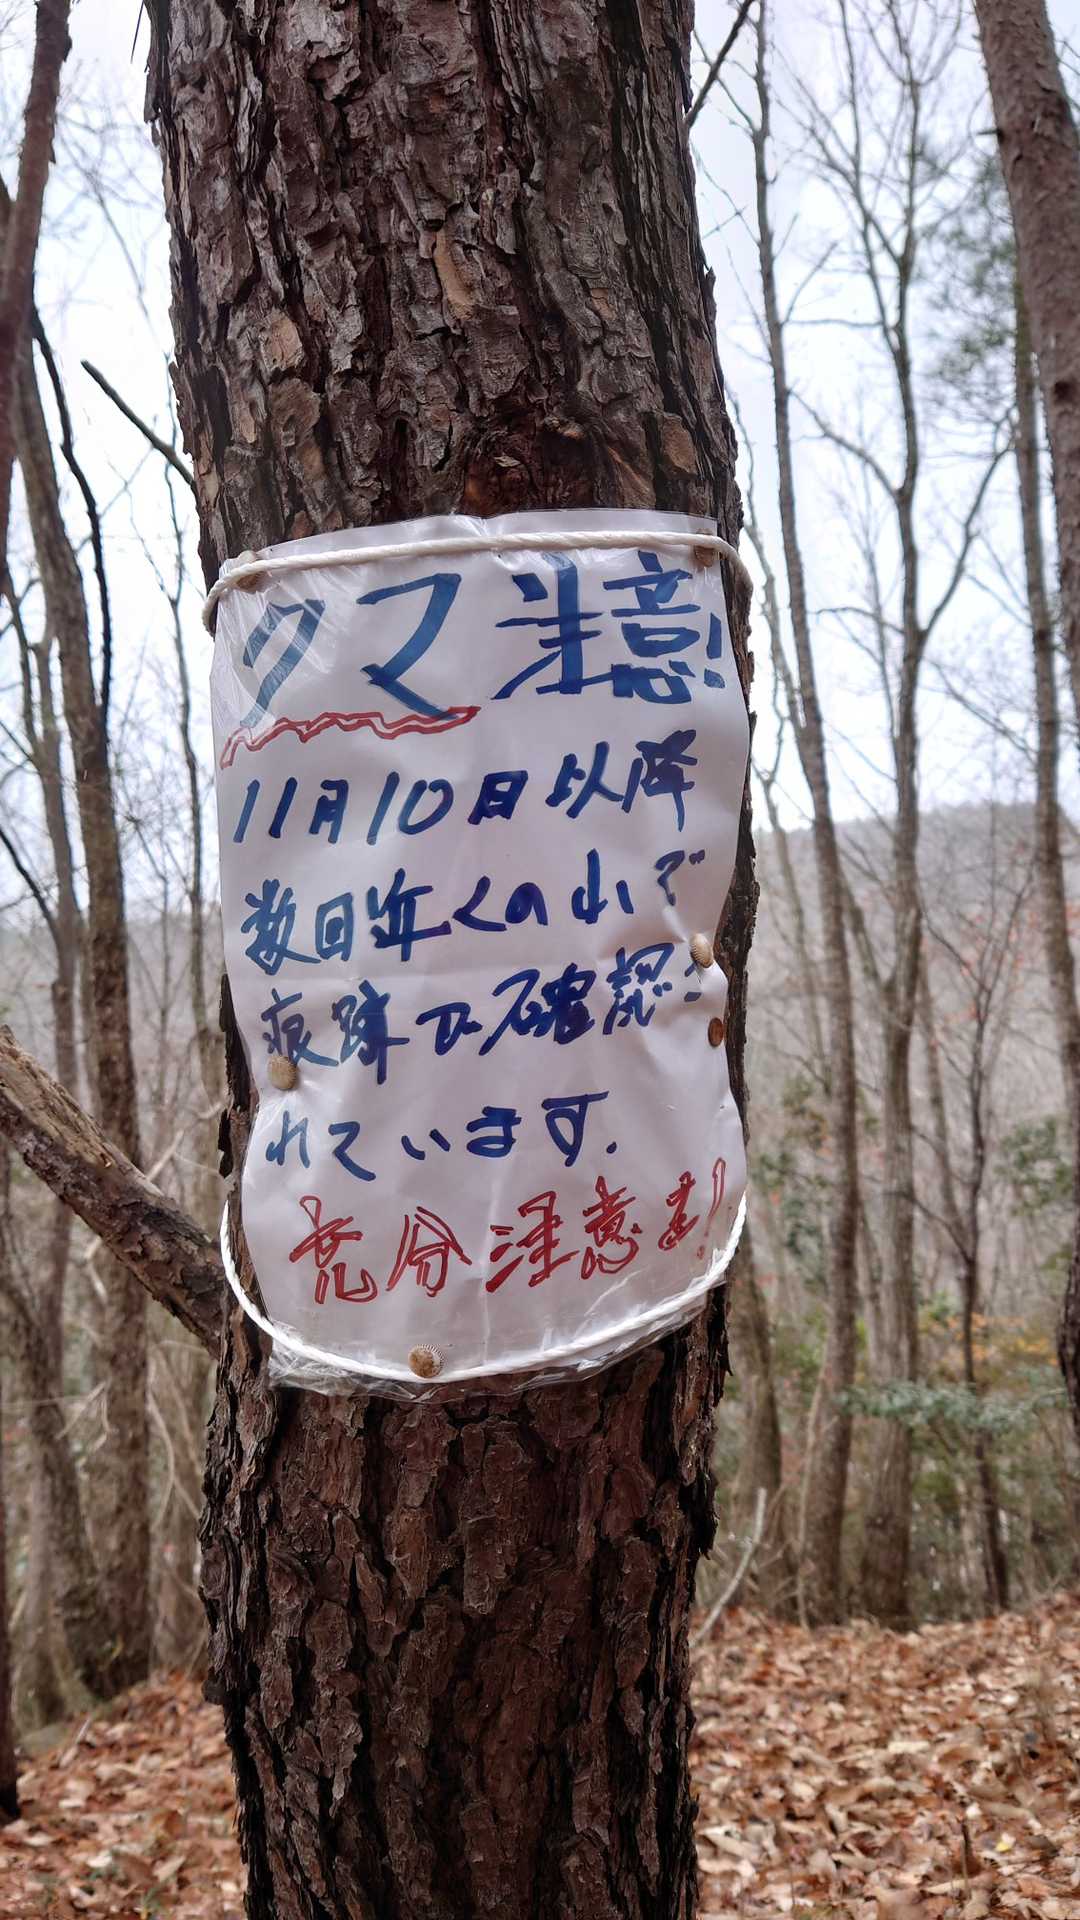 クマ注意!
11月10日以降
数回近くの山で
痕跡が確認さ
れています.
充分注意を!